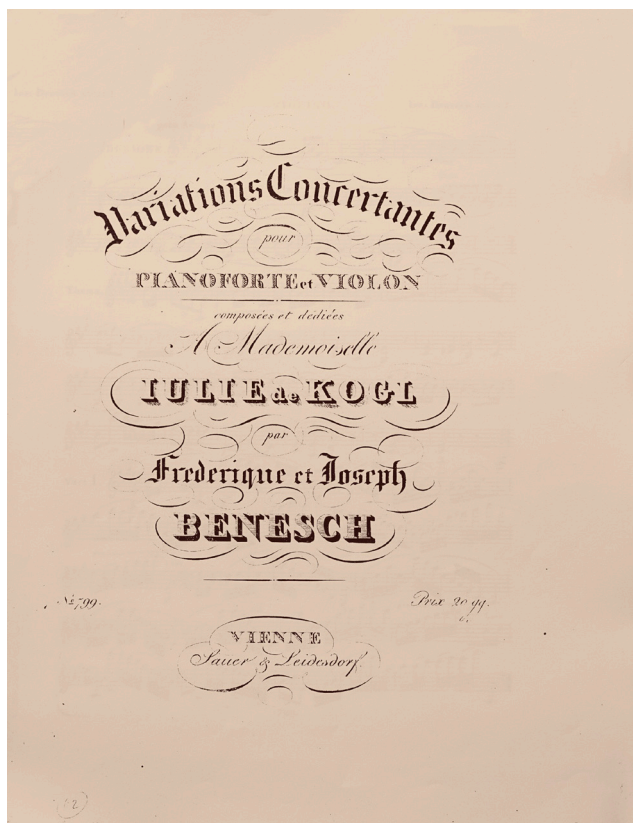 Variations Concertantes
pour
PIANOFORTE et VIOLON
composées et dédiées
A Mademoiselle
IULIE de KOGL
par
Frederique et Joseph
BENESCH
№ 799. Prix 20 gg.
VIENNE
Sauer & Leidesdorf.
(2)